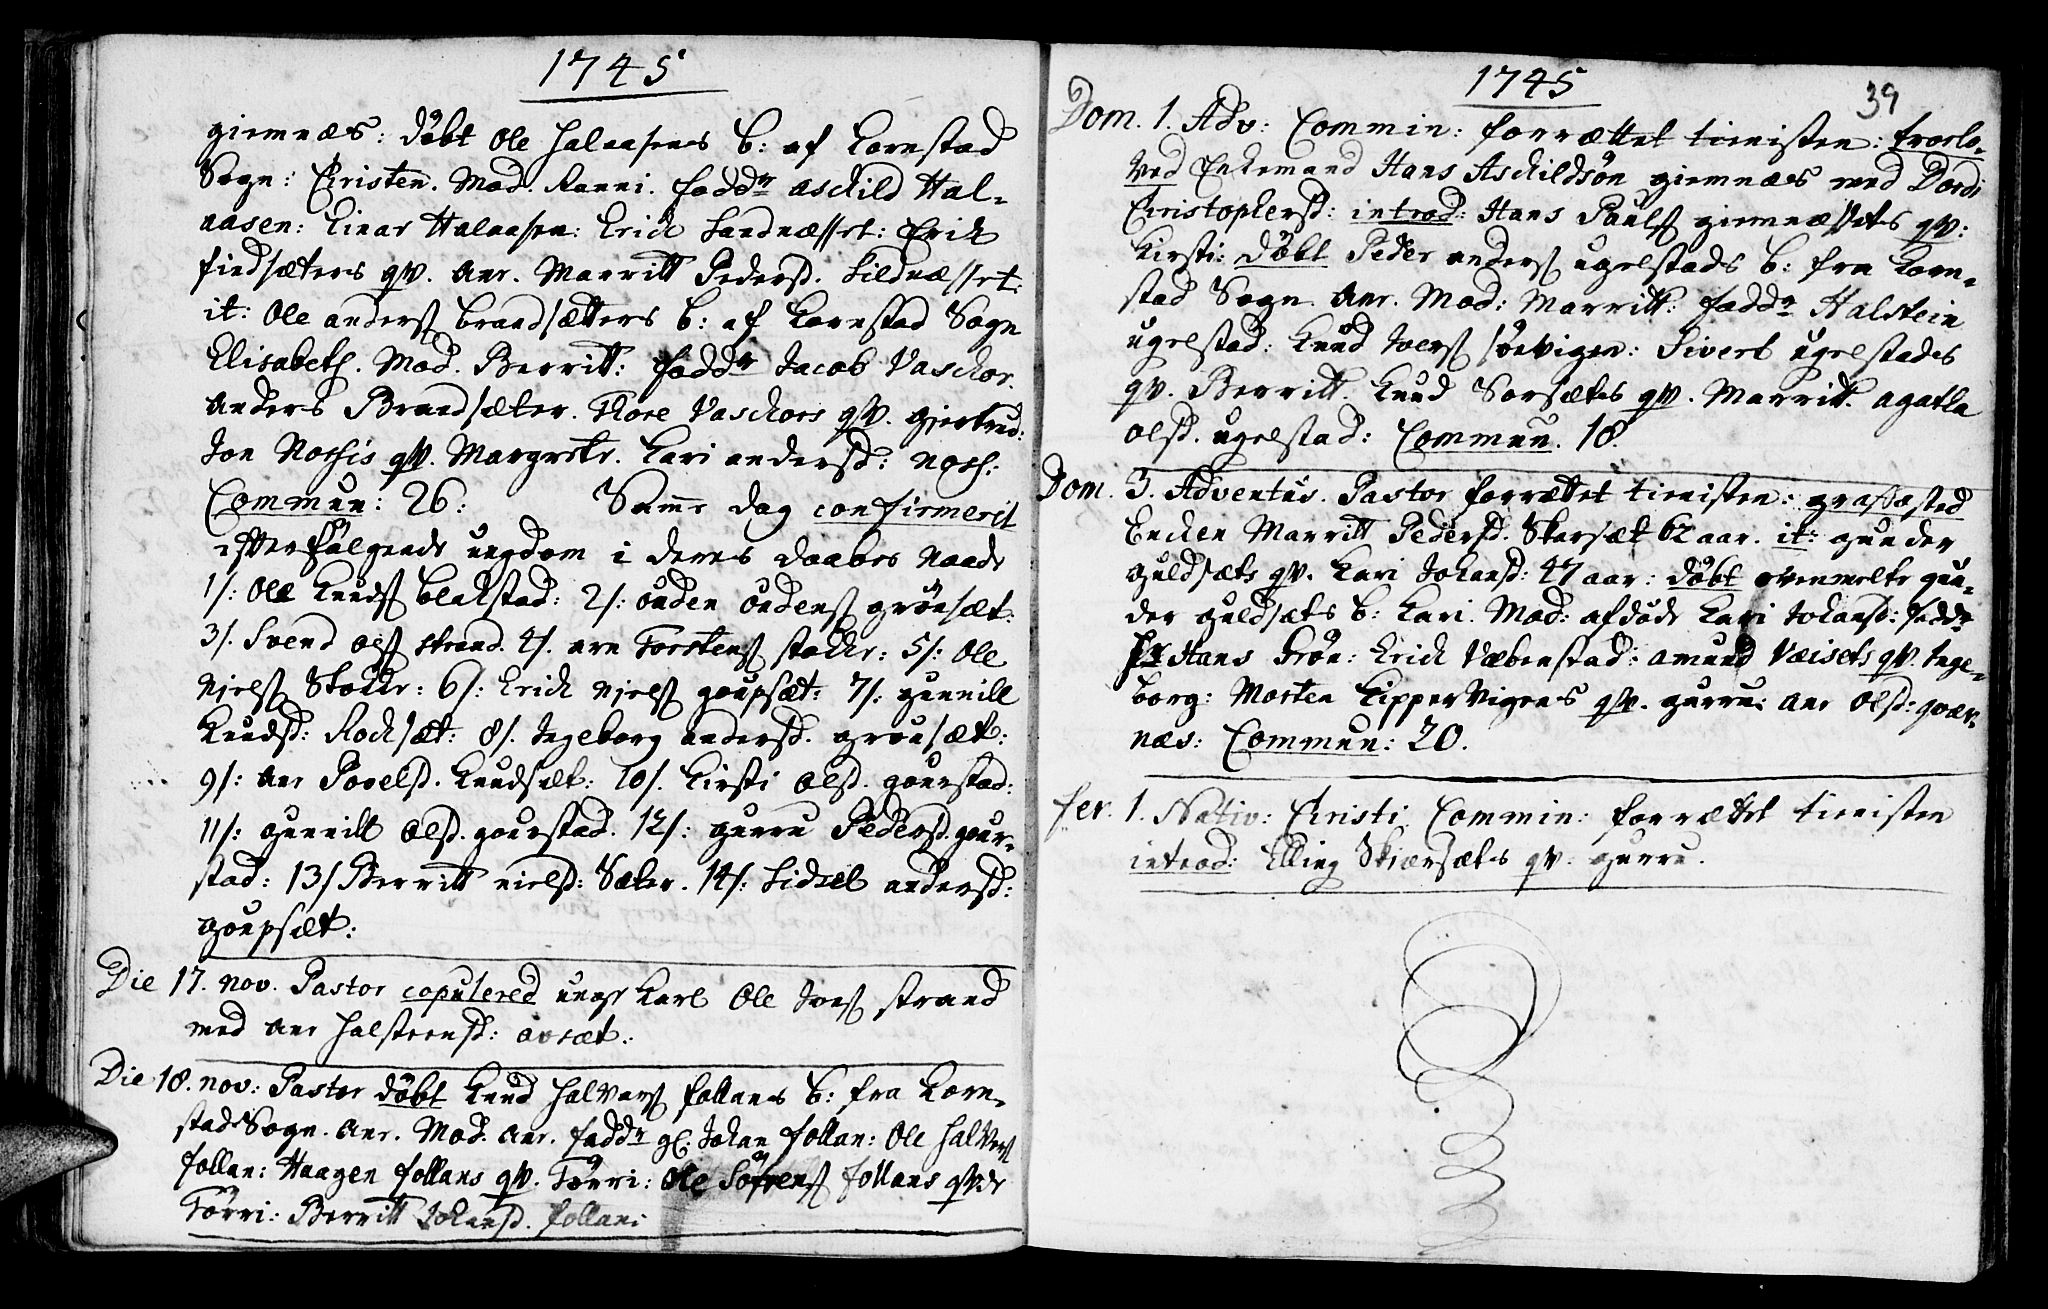 1745
giemnæs: døbt Ole halaasens b: af Kornstad
Sogn: Christen. Mod. Ranni. fadd: Askild Hal-
aasen: Einar Halaasen: Erich Sandnæsset: Erik
findsæters qv. Ane. Marritt Pedersd. Sildnæsset:
it: Ole anders brandsætters b: af Kornstad Sogn
Elisabeth. Mod. Berritt: fadd Jacob Vaschor.
Anders Brandsæter. Thore Vaschors qv. gjertrud:
Jon Noshis qv. Margrete. Kari andersd: Nosh:
Commun: 26: Samme dag confirmerit
efterfølgende ungdom i deres daabes Naade
1/: Ole Knuds blakstad: 2/: ønden øndens grønsæt:
3/. Svend Ols strand. 4/. arn Torstens stokke: 5/: Ole
Njels Stokke: 6/: Erich njels goupsæt: 7/: gunnill
Knudsd: Rochsæt: 8/. Ingeborg andersd. grønsæt:
9/: Ane Povelsd. Knudsæt: 10/. Kirsti Olsd. gourstad:
11/: gunnild Olsd. gourstad. 12/: gurru Pedersd. gour-
stad: 13/ Berritt nielsd: Sæter. 14/: Sidsel andersd:
goupsæt:
Die 17. nov. Pastor copulered unge Karl Ole Ives strand
med Ane halsteensd: avsæt:
Die 18. nov: Pastor døbt Knud halvors follans b: fra Korn-
stad Sogn. Ane. Mod. Ane. fadd gl: Johan follan: Ole halvors
follan: Haagen follans qv. Tørri: Ole Søfrens follans qvde
Tørri: Berritt Johansd. follan:
1745
39
Dom. 1. Adv: Commin: forrættet tienisten: troelo-
ved Enkemand Hans Askildsøn giemnæs med Dordi
Christophersd: introd: Hans Pauls giemnæssets qv:
Kirsti: døbt Peder anders ugelstads b: fra Korn-
stad Sogn. Ane. Mod: Marritt: fadd Halstein
ugelstad: Knud Ivers søevigen: Sivert ugelstads
qv. Berritt. Knud Sorsæts qv. Marritt. agatha
olsd. ugelstad: Commun. 18.
Dom. 3. Adventus. Pastor forrættet tienisten: græsfæsted
Encken Marritt Pedersd. Skarsæt 62 aar. it: gunder
guldsæts qv. Kari Johansd: 47 aar: døbt gun-
der guldsæts b: Kari. Mod: afdøde Kari Johansd: fadd
Hr Hans Grøn: Erich Væbenstad: amund Væisets qv. Inge-
borg: Morten Kippervigens qv. gurru: Ane Olsd: qver-
næs: Commun: 20.
fer. 1. Nativ: Christi Commin: forrættet tienisten
introd: Elling Skiærsæts qv. gurru.